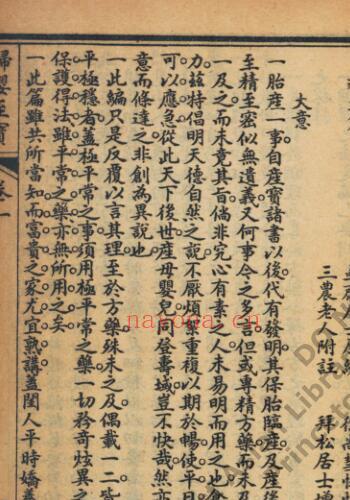 三農老人附註　拜松居士增
大意
一胎產一事自產寶諸書以後代有發明其保胎臨產及產後
至精至密似無遺義又何事今之多言但或專精方藥而未
一及之而未竟其旨倘非究心有素人未易明而用之也
力茲特倡明天德自然之說不厭煩瑣重複以期於暢使平日
可以應急從此天下後世產母嬰兒登壽域豈不快哉然亦
意而條達之非創為異說也
一此編只是反覆以言其理至於方藥殊未之及偶載一二皆
平極穩者蓋極平常之事須用極平常之藥一切矜奇炫異之
保護得法雖平常之藥亦無所用之矣
一此篇雖共所當知而富貴之家尤宜熟講蓋閨人平時嬌養
婦嬰至寶 卷一
napoha.cn